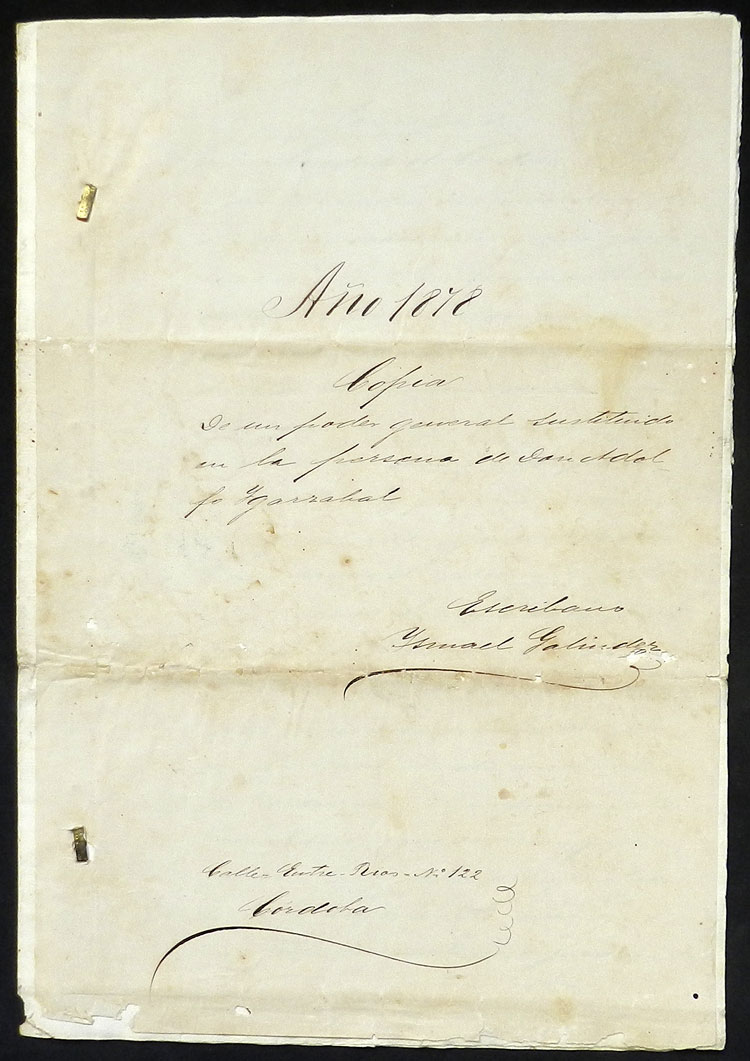 Año 1878
Copia
De un poder general sustituido
en la persona de Don Adol
fo Ygarzabal
Escribano
Ysmael Galindez
Calle - Entre - Rios - Nº 122
Córdoba